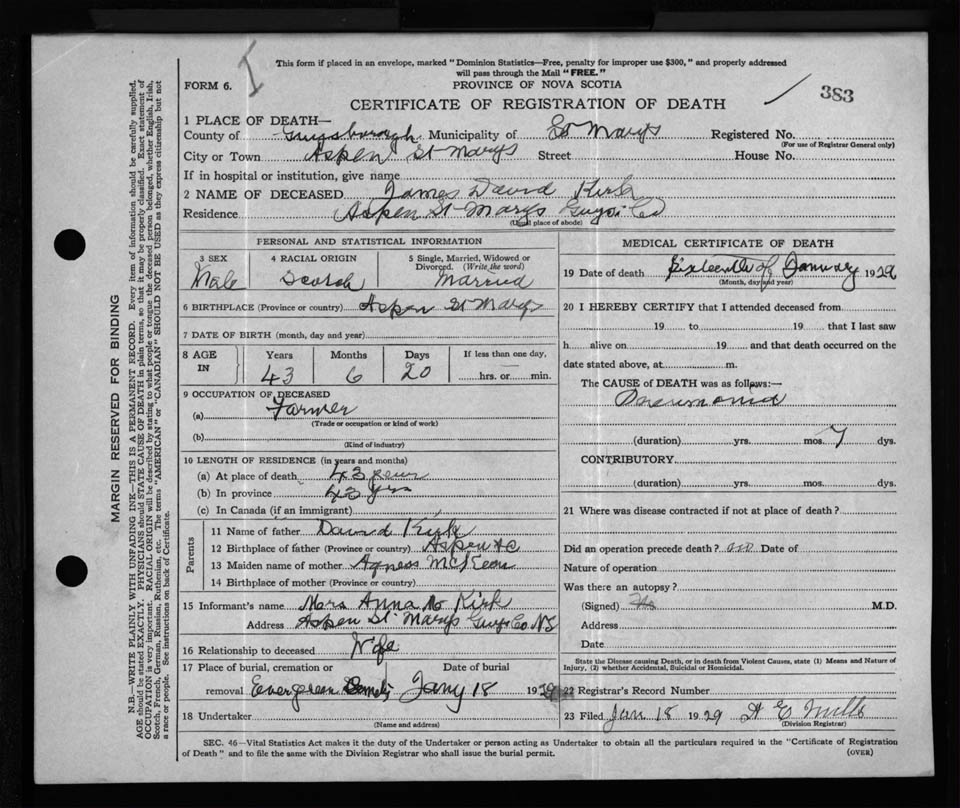 This form if placed in an envelope, marked "Dominion Statistics—Free, penalty for improper use $300," and properly addressed
will pass through the Mail "FREE."
FORM 6.
PROVINCE OF NOVA SCOTIA
CERTIFICATE OF REGISTRATION OF DEATH
383
1 PLACE OF DEATH—
County of Guysborough Municipality of St Mary's Registered No.
(For use of Registrar General only)
City or Town Aspen St Marys Street House No.
If in hospital or institution, give name
2 NAME OF DECEASED James David Kirk
Residence Aspen St Marys Guys Co
(Usual place of abode)
PERSONAL AND STATISTICAL INFORMATION
3 SEX 4 RACIAL ORIGIN 5 Single, Married, Widowed or
Divorced. (Write the word)
Male Scotch Married
6 BIRTHPLACE (Province or country) Aspen St Marys
7 DATE OF BIRTH (month, day and year)
8 AGE IN Years Months Days If less than one day,
43 6 20 hrs. or min.
9 OCCUPATION OF DECEASED
(a) Farmer
(Trade or occupation or kind of work)
(b)
(Kind of industry)
10 LENGTH OF RESIDENCE (in years and months)
(a) At place of death 43 years
(b) In province 43 yrs
(c) In Canada (if an immigrant)
Parents
11 Name of father David Kirk
12 Birthplace of father (Province or country) Aspen
13 Maiden name of mother Agness McKeen
14 Birthplace of mother (Province or country)
15 Informant's name Mrs Anna M Kirk
Address Aspen St Marys Guys Co NS
16 Relationship to deceased Wife
17 Place of burial, cremation or Date of burial
removal Evergreen Jany 18 1929
18 Undertaker
(Name and address)
MEDICAL CERTIFICATE OF DEATH
19 Date of death Sixteenth of January 1929
(Month, day and year)
20 I HEREBY CERTIFY that I attended deceased from
19 to 19 that I last saw
h alive on 19 and that death occurred on the
date stated above, at m.
The CAUSE of DEATH was as follows:—
Pneumonia
(duration) yrs. mos. 7 dys.
CONTRIBUTORY
(duration) yrs. mos. dys.
21 Where was disease contracted if not at place of death?
Did an operation precede death? Date of
Nature of operation
Was there an autopsy?
(Signed) M.D.
Address
Date
State the Disease causing Death, or in death from Violent Causes, state (1) Means and Nature of
Injury, (2) whether Accidental, Suicidal or Homicidal.
22 Registrar's Record Number
23 Filed Jan 18 1929 Mills
(Division Registrar)
SEC. 46—Vital Statistics Act makes it the duty of the Undertaker or person acting as Undertaker to obtain all the particulars required in the "Certificate of Registration
of Death" and to file the same with the Division Registrar who shall issue the burial permit. (OVER)
MARGIN RESERVED FOR BINDING
N.B.—WRITE PLAINLY WITH UNFADING INK—THIS IS A PERMANENT RECORD. Every item of information should be carefully supplied.
AGE should be stated EXACTLY. PHYSICIANS should STATE CAUSE OF DEATH in plain terms, so that it may be properly classified. Exact statement of
OCCUPATION is very important. RACIAL ORIGIN will be described by stating to what people or tongue the deceased person belonged, whether English, Irish,
Scotch, French, German, Russian, Ruthenian, etc. The terms "AMERICAN" or "CANADIAN" SHOULD NOT BE USED as they express citizenship but not
a race or people. See instructions on back of Certificate.